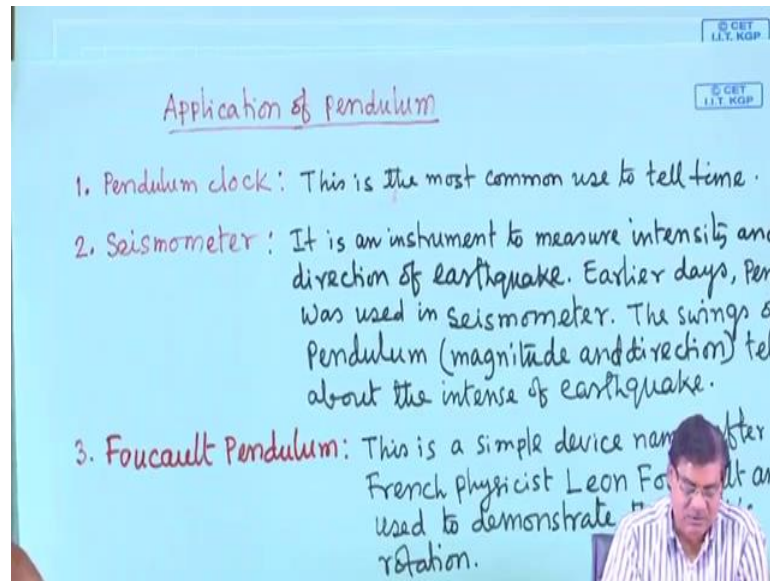 © CET
I.I.T. KGP
© CET
I.I.T. KGP
Application of pendulum
1. Pendulum clock: This is the most common use to tell time.
2. Seismometer: It is an instrument to measure intensity and
direction of earthquake. Earlier days, Pen
was used in seismometer. The swings o
Pendulum (magnitude and direction) tel
about the intense of earthquake.
3. Foucault Pendulum: This is a simple device nam after
French physicist Leon Fo lt an
used to demonstrate
rotation.